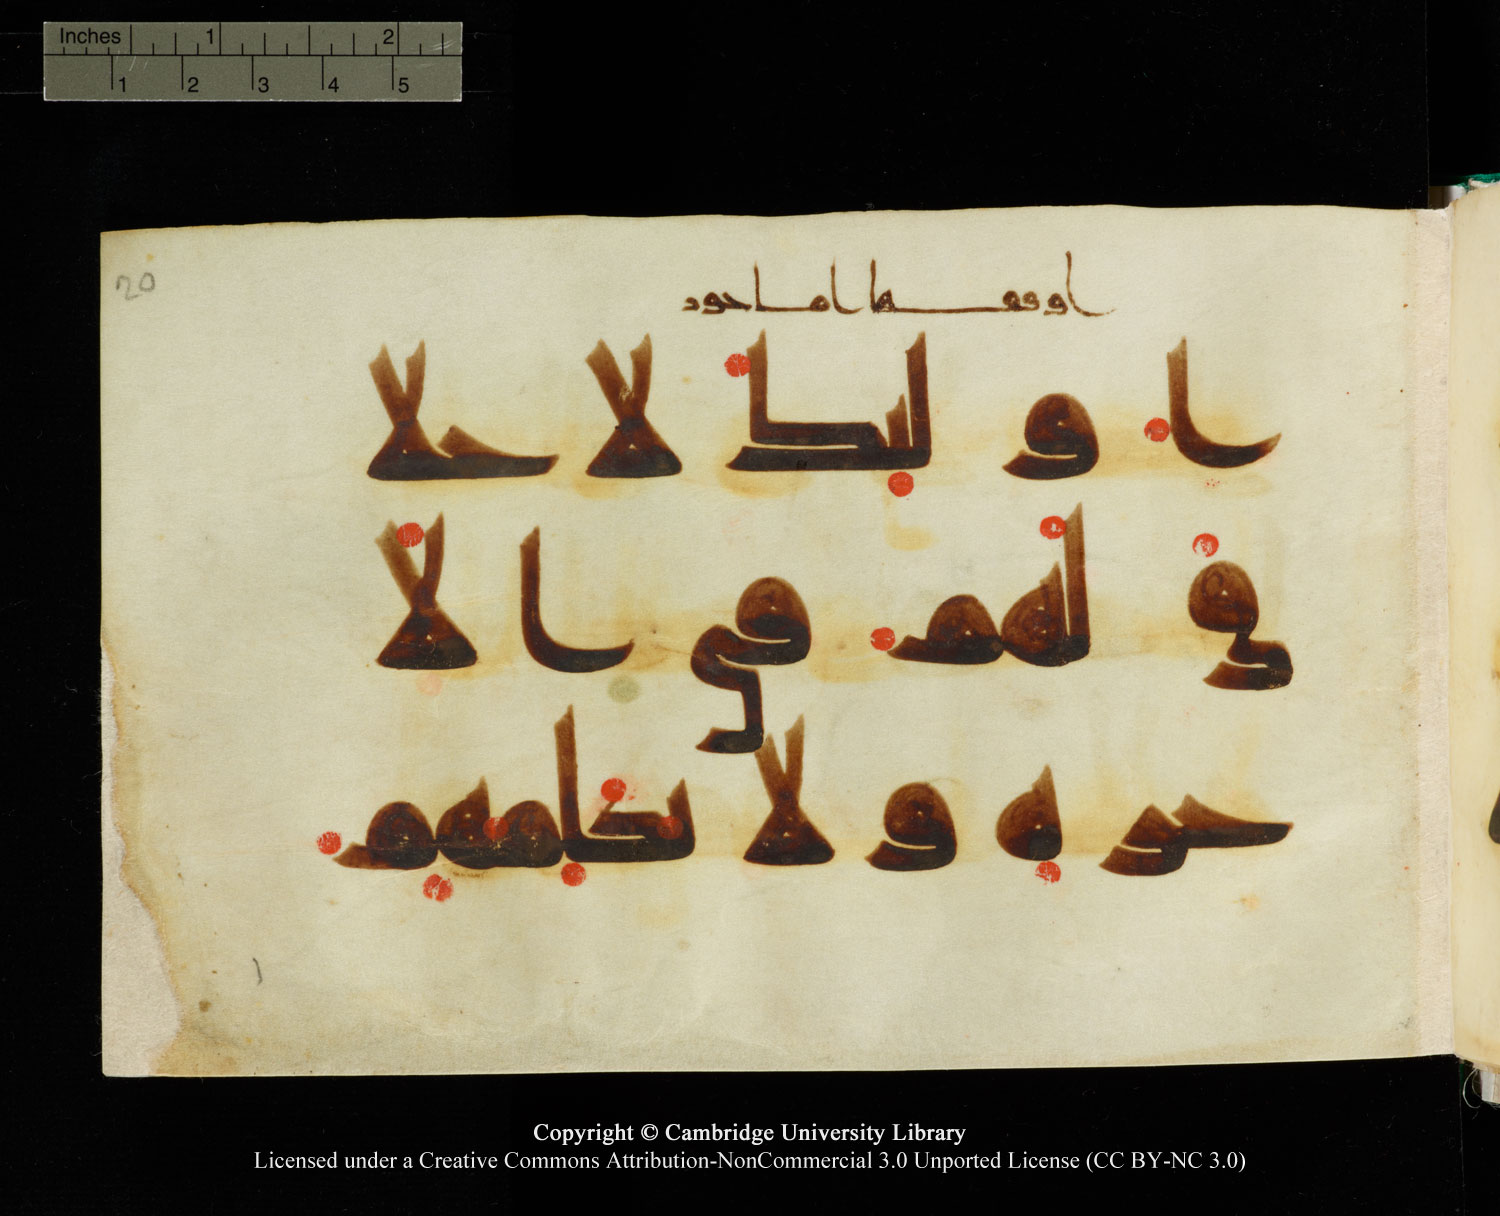 Inches 1 2
1 2 3 4 5
20
اوقفها اماجور
اولئك لا خلا
ق لهم في الا
خره ولا يكلمهم
Copyright © Cambridge University Library
Licensed under a Creative Commons Attribution-NonCommercial 3.0 Unported License (CC BY-NC 3.0)